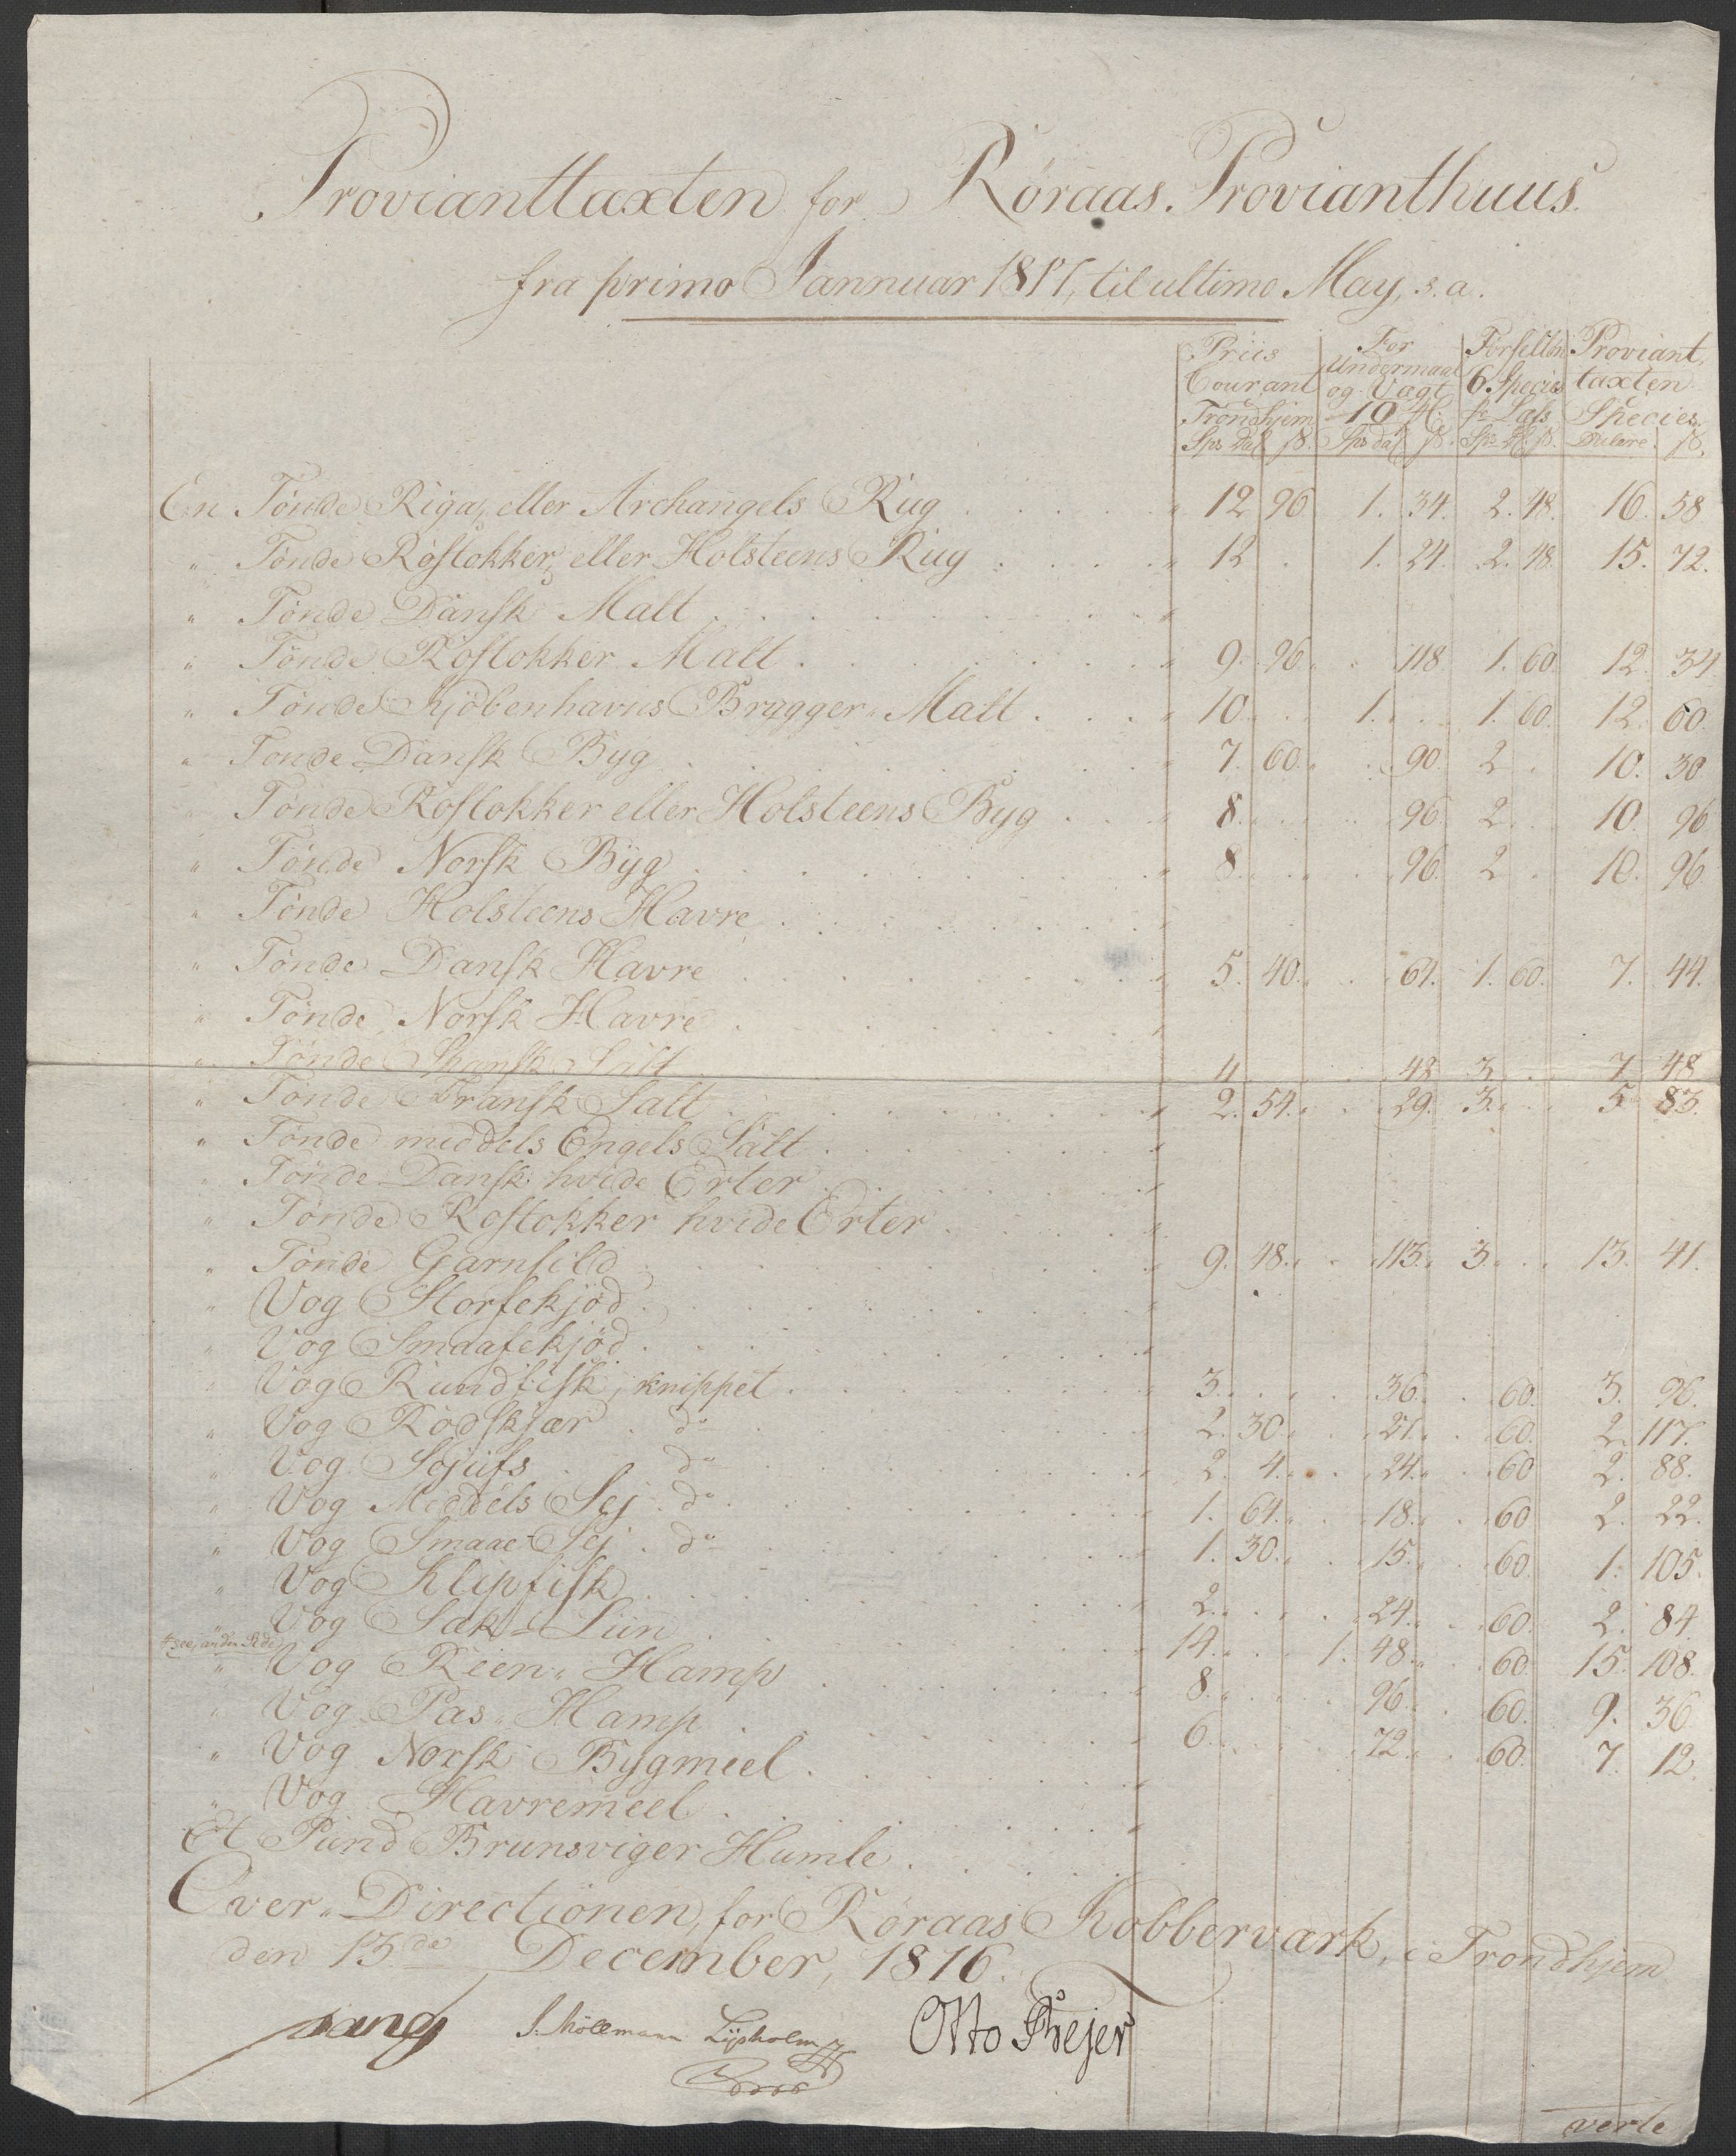 Provianttaxten for Røraas Provianthuus.
fra primo Jannuar 1817, til ultimo May, s. a.
Priis Courant Trondhjem Sps Dal s. | For Undermaal og Vægt 10 % Sps dal s. | 6 Species Læss | Proviant taxten Species Dalere s.
En Tønde Riga, eller Archangels Rug 12 96 1. 34. 2. 48. 16. 58
" Tønde Rostokker, eller Holsteens Rug 12 . 1. 24. 2. 48. 15. 72.
" Tønde Dansk Malt
" Tønde Rostokker Malt 9. 96. 118. 1. 60. 12. 34
" Tønde Kjöbenhavns Brygger Malt 10. 1. 1. 60. 12. 60.
" Tønde Dansk Byg 7. 60. 90. 2 10. 30
" Tønde Rostokker eller Holsteens Byg 8. 96 2. 10. 96
" Tønde Norsk Byg 8. 96. 2 10. 96.
" Tønde Holsteens Havre
" Tønde Dansk Havre 5. 40. 64. 1. 60. 7. 44.
" Tønde Norsk Havre
" Tønde Spansk Salt 4 48 3 7 48
" Tønde Fransk Salt 2. 54. 29. 3. 5 83.
" Tønde middels Engels Salt
" Tønde Dansk hvide Erter
" Tønde Rostokker hvide Erter
" Tønde Garnsild 9. 48. 113. 3. 13. 41.
" Vog Storfekjød
" Vog Smaafekjød
" Vog Rundfisk, knippet 3. 36. 60. 3. 96.
" Vog Rødskjær do 2. 30. 27. 60. 2. 117.
" Vog Sejufs do 2. 4. 24. 60 2. 88.
" Vog Middels Sej do 1. 64. 18. 60 2. 22.
" Vog Smaae Sej do 1. 30. 15. 60. 1. 105.
" Vog Klipfisk 2. 24. 60. 2. 84
" Vog Sæk Liin 14. 1. 48. 60. 15. 108.
" Vog Reen Hamp 8. 96. 60. 9. 36
" Vog Pas Hamp 6. 72. 60. 7. 12.
" Vog Norsk Bygmeel
" Vog Havremeel
Et Pund Brunsviger Humle
Over Directionen, for Røraas Kobberværk, i Trondhjem
den 13de December, 1816.
Lysholm Otto Bejer
verte